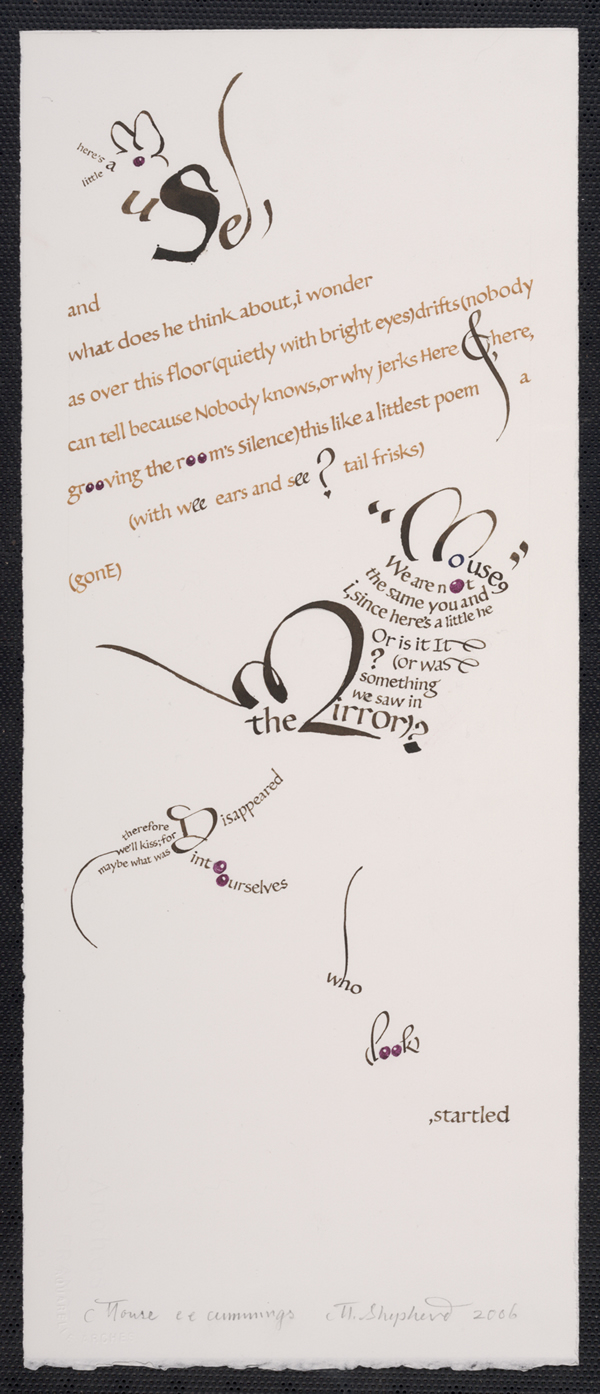 here's
little a
MouSe)
and
what does he think about,i wonder
as over this floor(quietly with bright eyes)drifts(nobody
can tell because Nobody knows,or why jerks Here & here,
grooving the room's Silence)this like a littlest poem a
(with wee ears and see? tail frisks)
(gonE)
"Mouse"
We are not
the same you and
i,since here's a little he
Or is it It
? (or was
something
we saw in
the Mirror)?
therefore
we'll kiss;for
maybe what was
Disappeared
into
ourselves
who
(look)
,startled
Mouse ee cummings M. Shepherd 2006